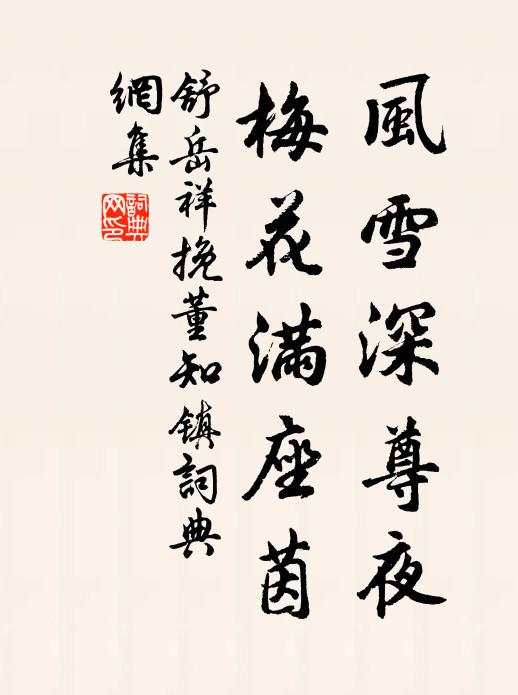 風雪深尊夜
梅花满座茵
舒岳祥挽董知镇詞典
網集
詞典网印